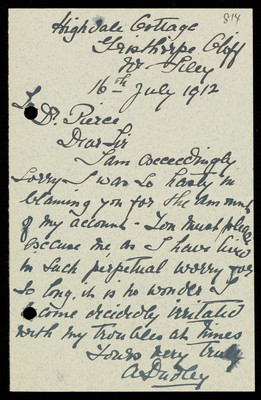 814
Highdale Cottage
Gristhorpe Cliff
Nr Filey
16th July 1912
To Dr. Pierce
Dear Sir
I am exceedingly
sorry I was so hasty in
blaming you for the amount
of my account - You must please
excuse me as I have lived
in such perpetual worry for
so long, it is no wonder I
become decidedly irritated
with my troubles at times
Yours very truly
A Dudley